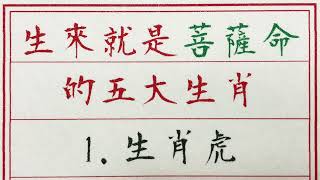 生來就是菩薩命
的五大生肖
1.生肖虎